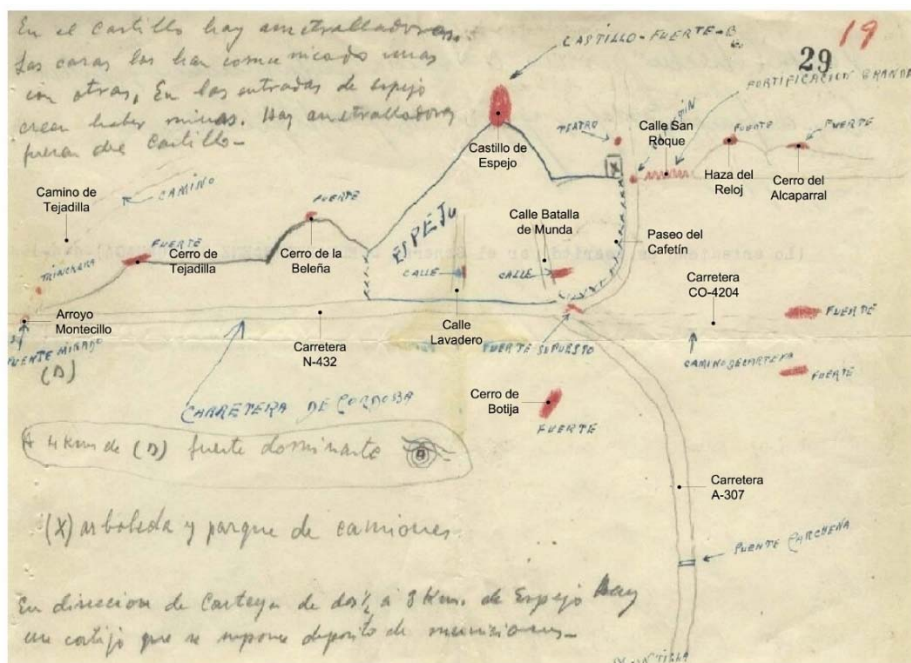 En el Castillo hay ametralladoras.
Las casas las han comunicado unas
con otras. En las entradas de espejo
creen haber minas. Hay ametralladoras
fuera del Castillo-
CASTILLO-FUERTE-B
29
19
FORTIFICACION GRANDE
TEATRO
Calle San
Roque
FUERTE
FUERTE
Castillo de
Espejo
X
Haza del
Reloj
Cerro del
Alcaparral
Camino de
Tejadilla
CAMINO
FUERTE
Cerro de la
Beleña
ESPEJO
Calle Batalla
de Munda
Paseo del
Cafetín
FUERTE
Cerro de
Tejadilla
TRINCHERA
CALLE
CALLE
Carretera
CO-4204
Arroyo
Montecillo
Calle
Lavadero
FUERTE
Carretera
N-432
PUENTE MINADO
(D)
FUERTE SUPUESTO
CAMINO DE CARTEYA
FUERTE
CARRETERA DE CORDOBA
Cerro de
Botija
FUERTE
A 4 Km de (D) fuerte dominante
Carretera
A-307
(X) arboleda y parque de camiones.
PUENTE CARCHENA
En direccion de Carteya de dos ½ a 3 Km. de Espejo hay
un cortijo que se supone deposito de municiones-